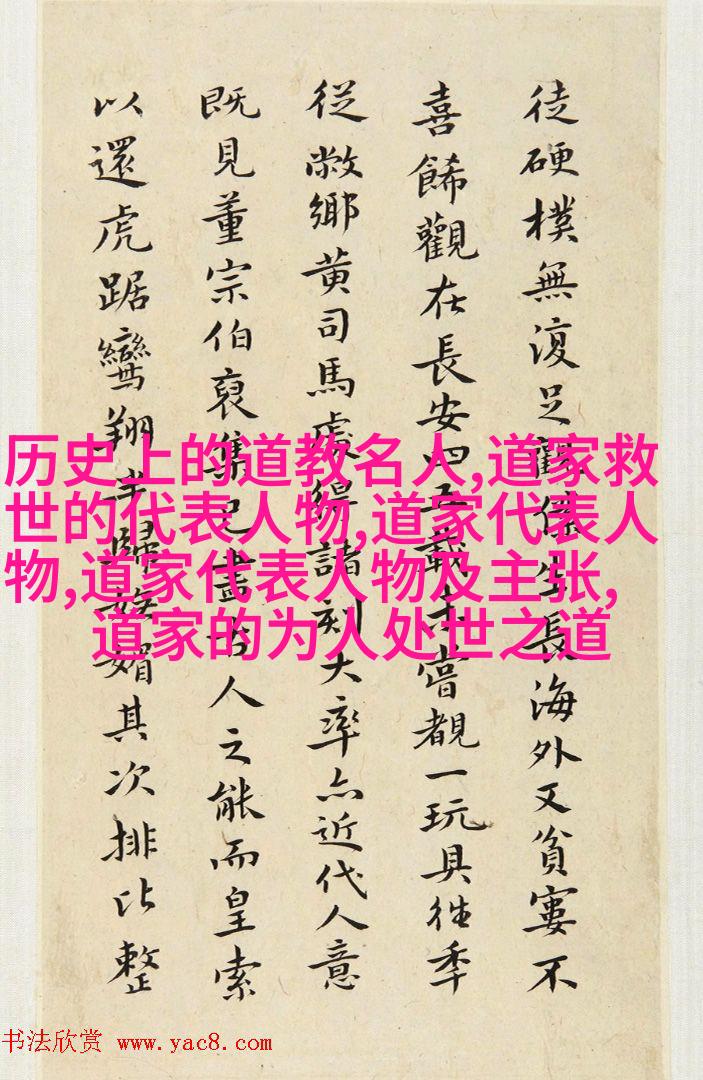 徒硬樸無復足觀僕生長海外又貧窶不
喜餙觀在長安四五載未嘗覩一玩具往季
從敝鄉黃司馬處得諸刻大率亦近代人意
既見董宗伯裒集已盡古人之能而皇索
以還虎踞鸞翔半歸媚其次排比整
历史上的道教名人,道家救
世的代表人物,道家代表人
物,道家代表人物及主张,
道家的为人处世之道
书法欣赏 www.yac8.com